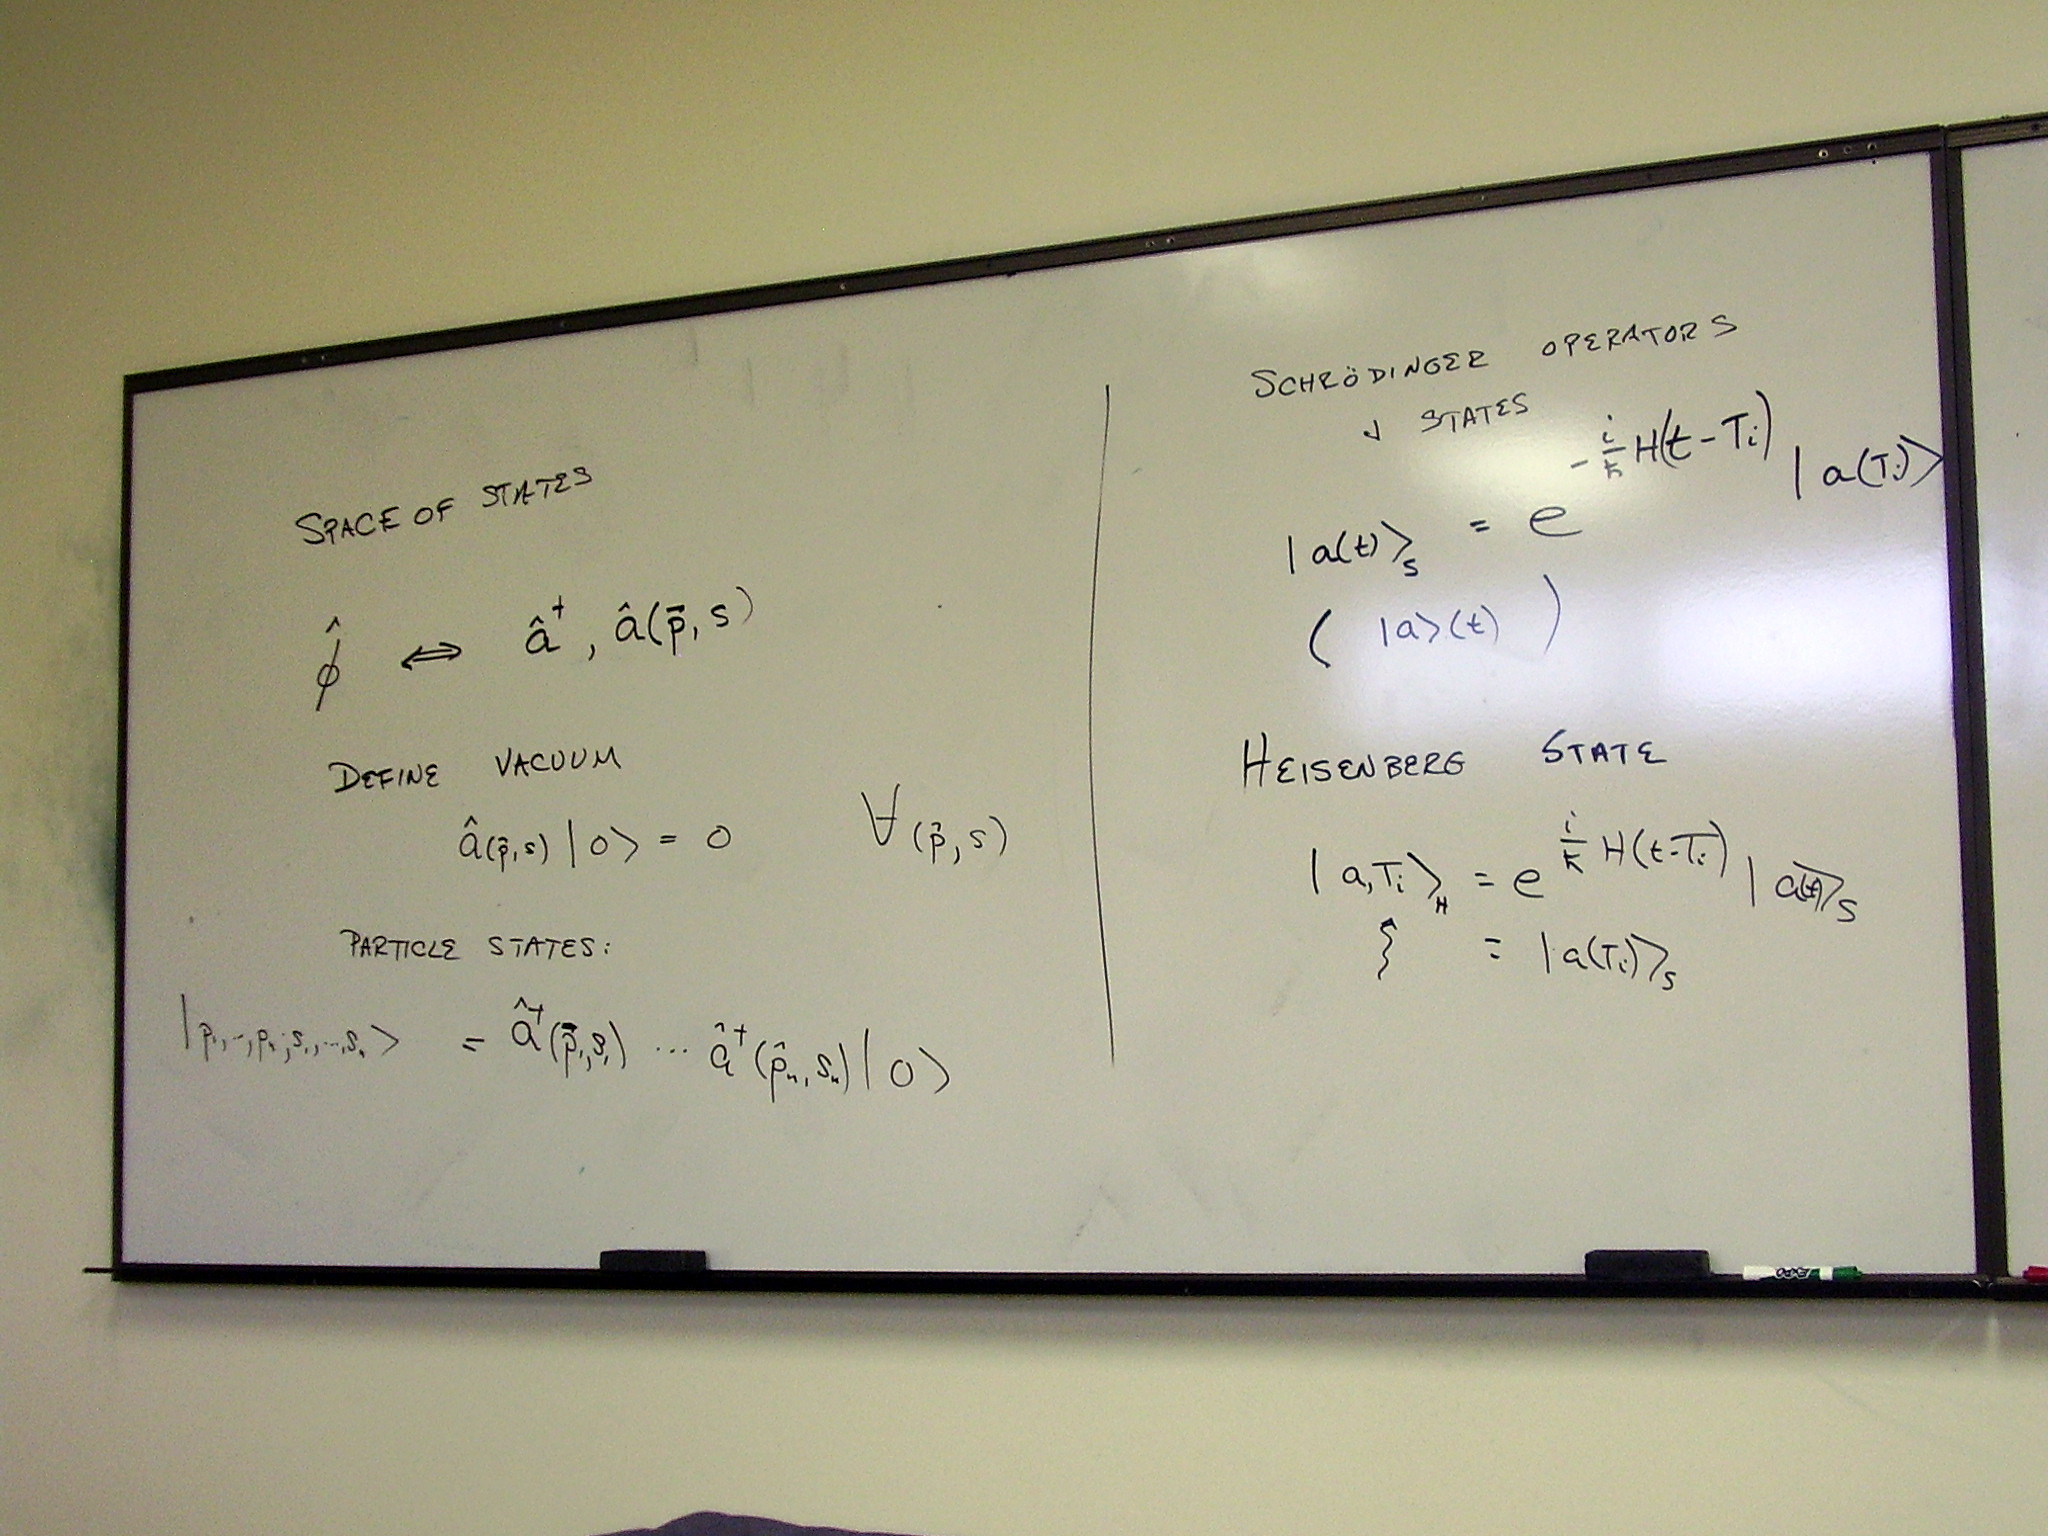 SPACE OF STATES
φ̂ ⇔ â†, â(p⃗, s)
DEFINE VACUUM
â(p⃗,s) |0⟩ = 0 ∀(p⃗, s)
PARTICLE STATES:
|p₁,…,pₙ;s₁,…,sₙ⟩ = â†(p⃗₁,s₁) … â†(p⃗ₙ,sₙ)|0⟩
SCHRÖDINGER OPERATORS
& STATES
|a(t)⟩_S = e^{-i/ħ H(t-Tᵢ)} |a(Tᵢ)⟩
( |a⟩(t) )
HEISENBERG STATE
|a,Tᵢ⟩_H = e^{i/ħ H(t-Tᵢ)} |a(t)⟩_S
= |a(Tᵢ)⟩_S